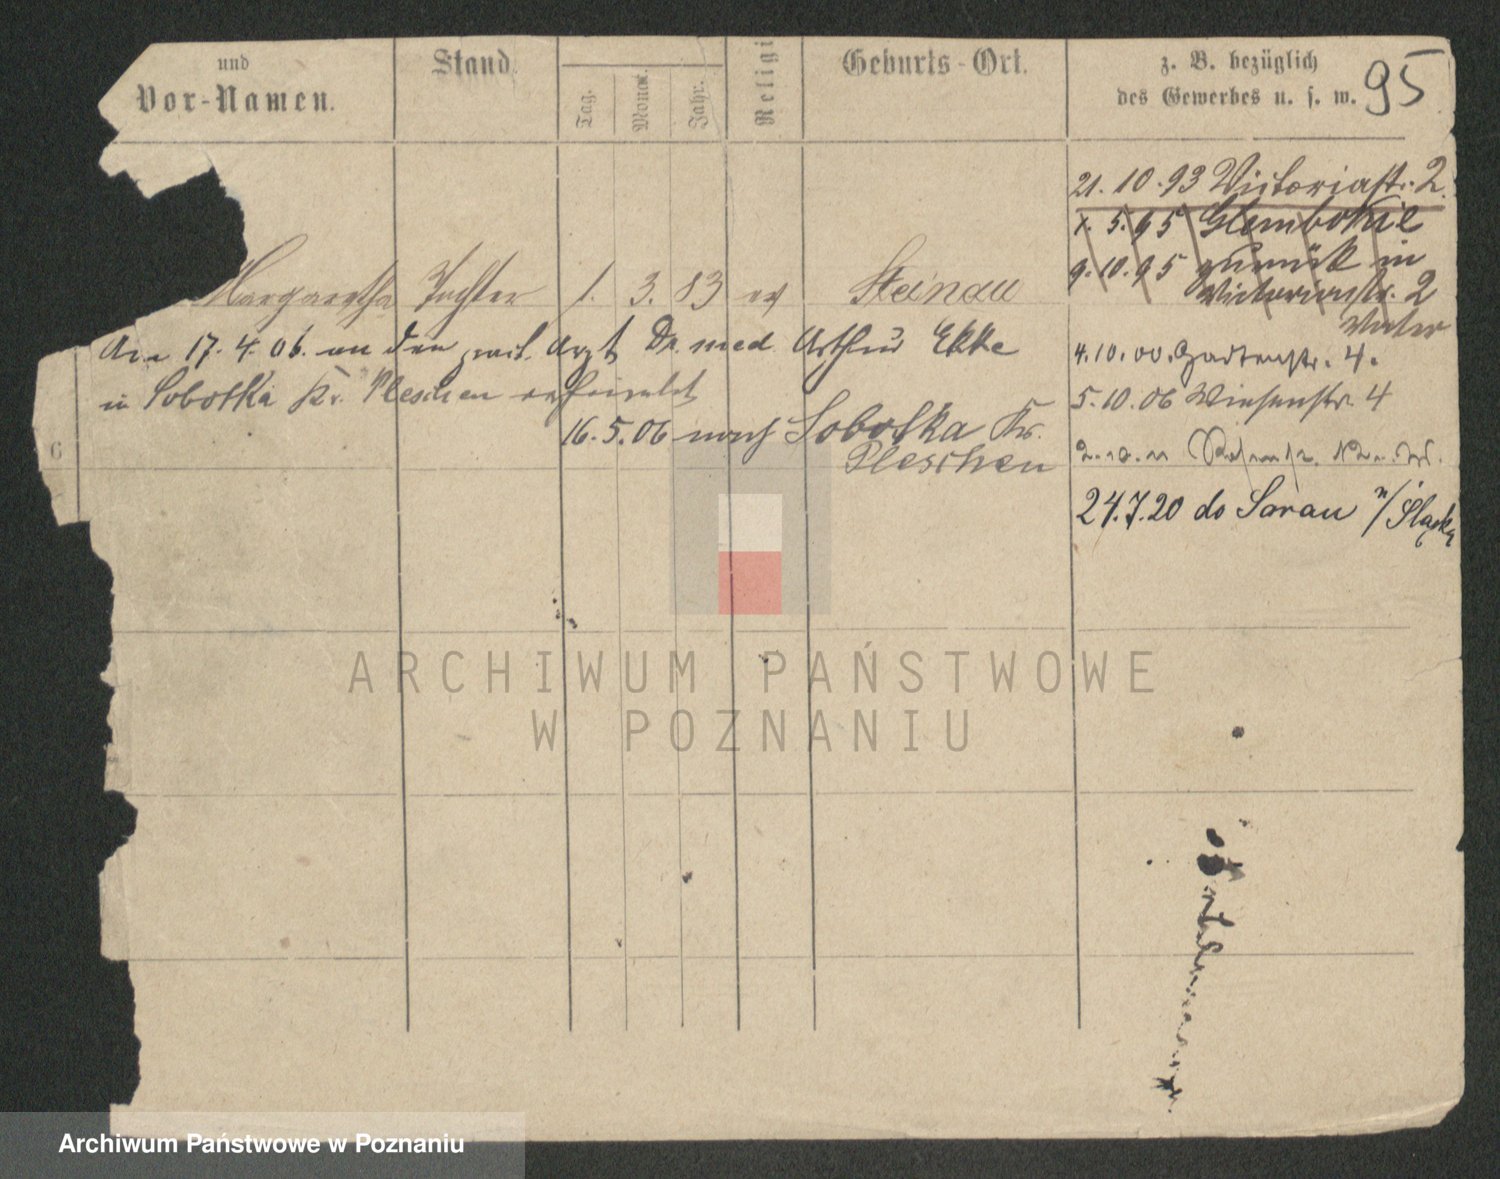 und
Vor-Namen.
Stand.
Tag.
Monat.
Jahr.
Religi
Geburts-Ort.
z. B. bezüglich
des Gewerbes u. s. w.
95
21. 10. 93 Victoriastr. 2.
1. 5. 95 Glembokie
9. 10. 95 zurück in
Victoriastr. 2
Vater
Margaretha Tochter 1. 3. 83 ev Steinau
Am 17. 4. 06. an den pract. Arzt Dr. med. Arthur Ekke
in Sobotka Kr. Pleschen verheiratet
16. 5. 06 nach Sobotka Kr.
Pleschen
4. 10. 00. Gartenstr. 4.
5. 10. 06 Wiesenstr. 4
24. 7. 20 do Sorau n/Śląsk
6
ARCHIWUM PAŃSTWOWE
W POZNANIU
Archiwum Państwowe w Poznaniu